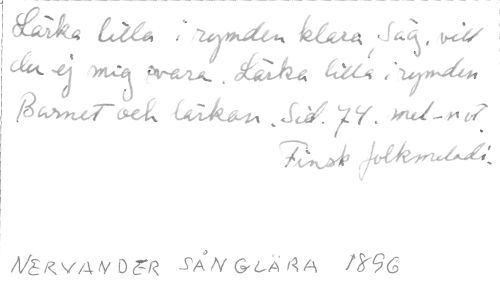 Lärka lilla i rymden klara, Säg, vill
du ej mig svara. Lärka lilla i rymden
Barnet och lärkan. Sid. 74. mel-not.
Finsk folkmelodi.
NERVANDER SÅNGLÄRA 1896